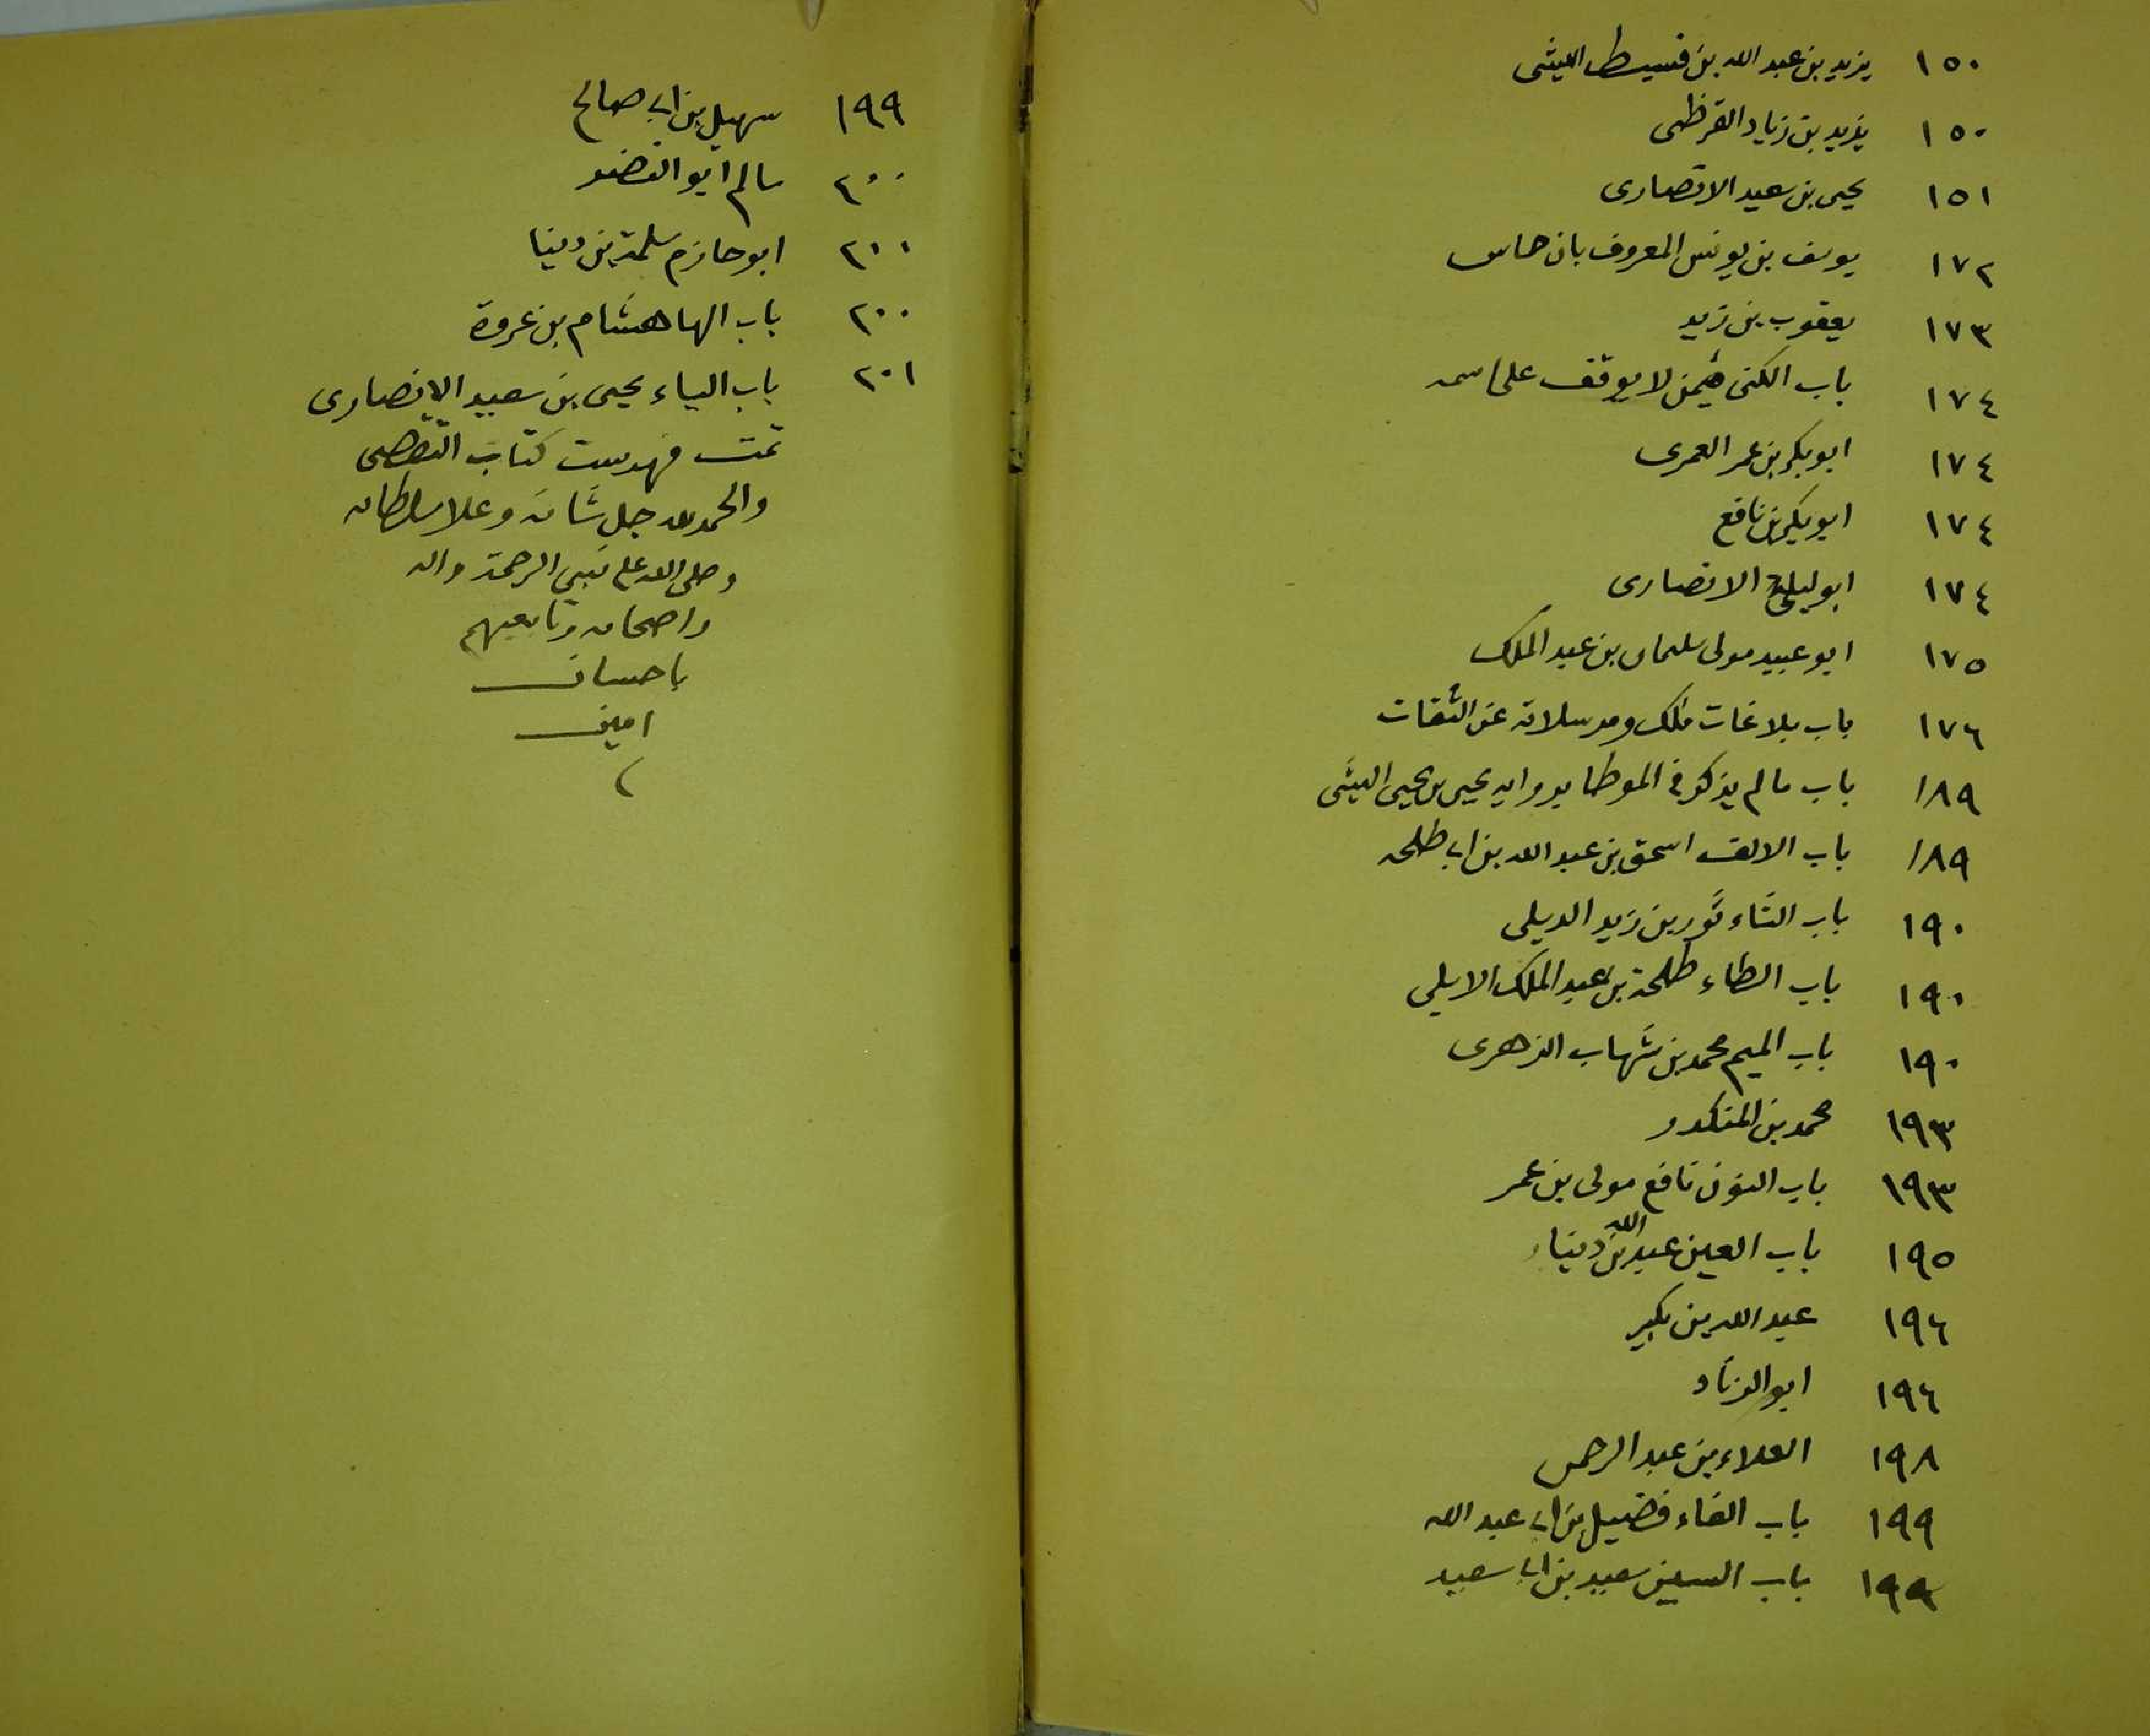 ١٥٠ يزيد بن عبد الله بن قسيط الليثى
١٥٠ يزيد بن زياد القرظى
١٥١ يحيى بن سعيد الانصارى
١٧٢ يوسف بن يونس المعروف بابن حماس
١٧٣ يعقوب بن زيد
١٧٤ باب الكنى فيمن لا يوقف على اسمه
١٧٤ ابو بكر بن عمر العمرى
١٧٤ ابو بكر بن نافع
١٧٤ ابو ليلى الانصارى
١٧٥ ابو عبيد مولى سليمان بن عبد الملك
١٧٦ باب بلاغات مالك ومرسلاته عن الثقات
١٨٩ باب ما لم يذكر فى الموطا برواية يحيى بن يحيى الليثى
١٨٩ باب الالف اسحق بن عبد الله بن ابى طلحه
١٩٠ باب الثاء ثور بن زيد الديلى
١٩٠ باب الطاء طلحة بن عبد الملك الايلى
١٩٠ باب الميم محمد بن شهاب الزهرى
١٩٣ محمد بن المنكدر
١٩٣ باب النون نافع مولى بن عمر
١٩٥ باب العين عبد الله بن دينار
١٩٦ عبد الله بن بكير
١٩٦ ابو الزناد
١٩٨ العلاء بن عبد الرحمن
١٩٩ باب الفاء فضيل بن ابى عبد الله
١٩٩ باب السين سعيد بن ابى سعيد
١٩٩ سهيل بن ابى صالح
٢٠٠ سالم ابو النضر
٢٠٠ ابو حازم سلمة بن دينا
٢٠٠ باب الها هشام بن عروة
٢٠١ باب الياء يحيى بن سعيد الانصارى
تمت فهرست كتاب التقصى
والحمد لله جل شانه وعلا سلطانه
وصلى الله على نبى الرحمة واله
واصحابه وتابعيهم
باحسان
امين